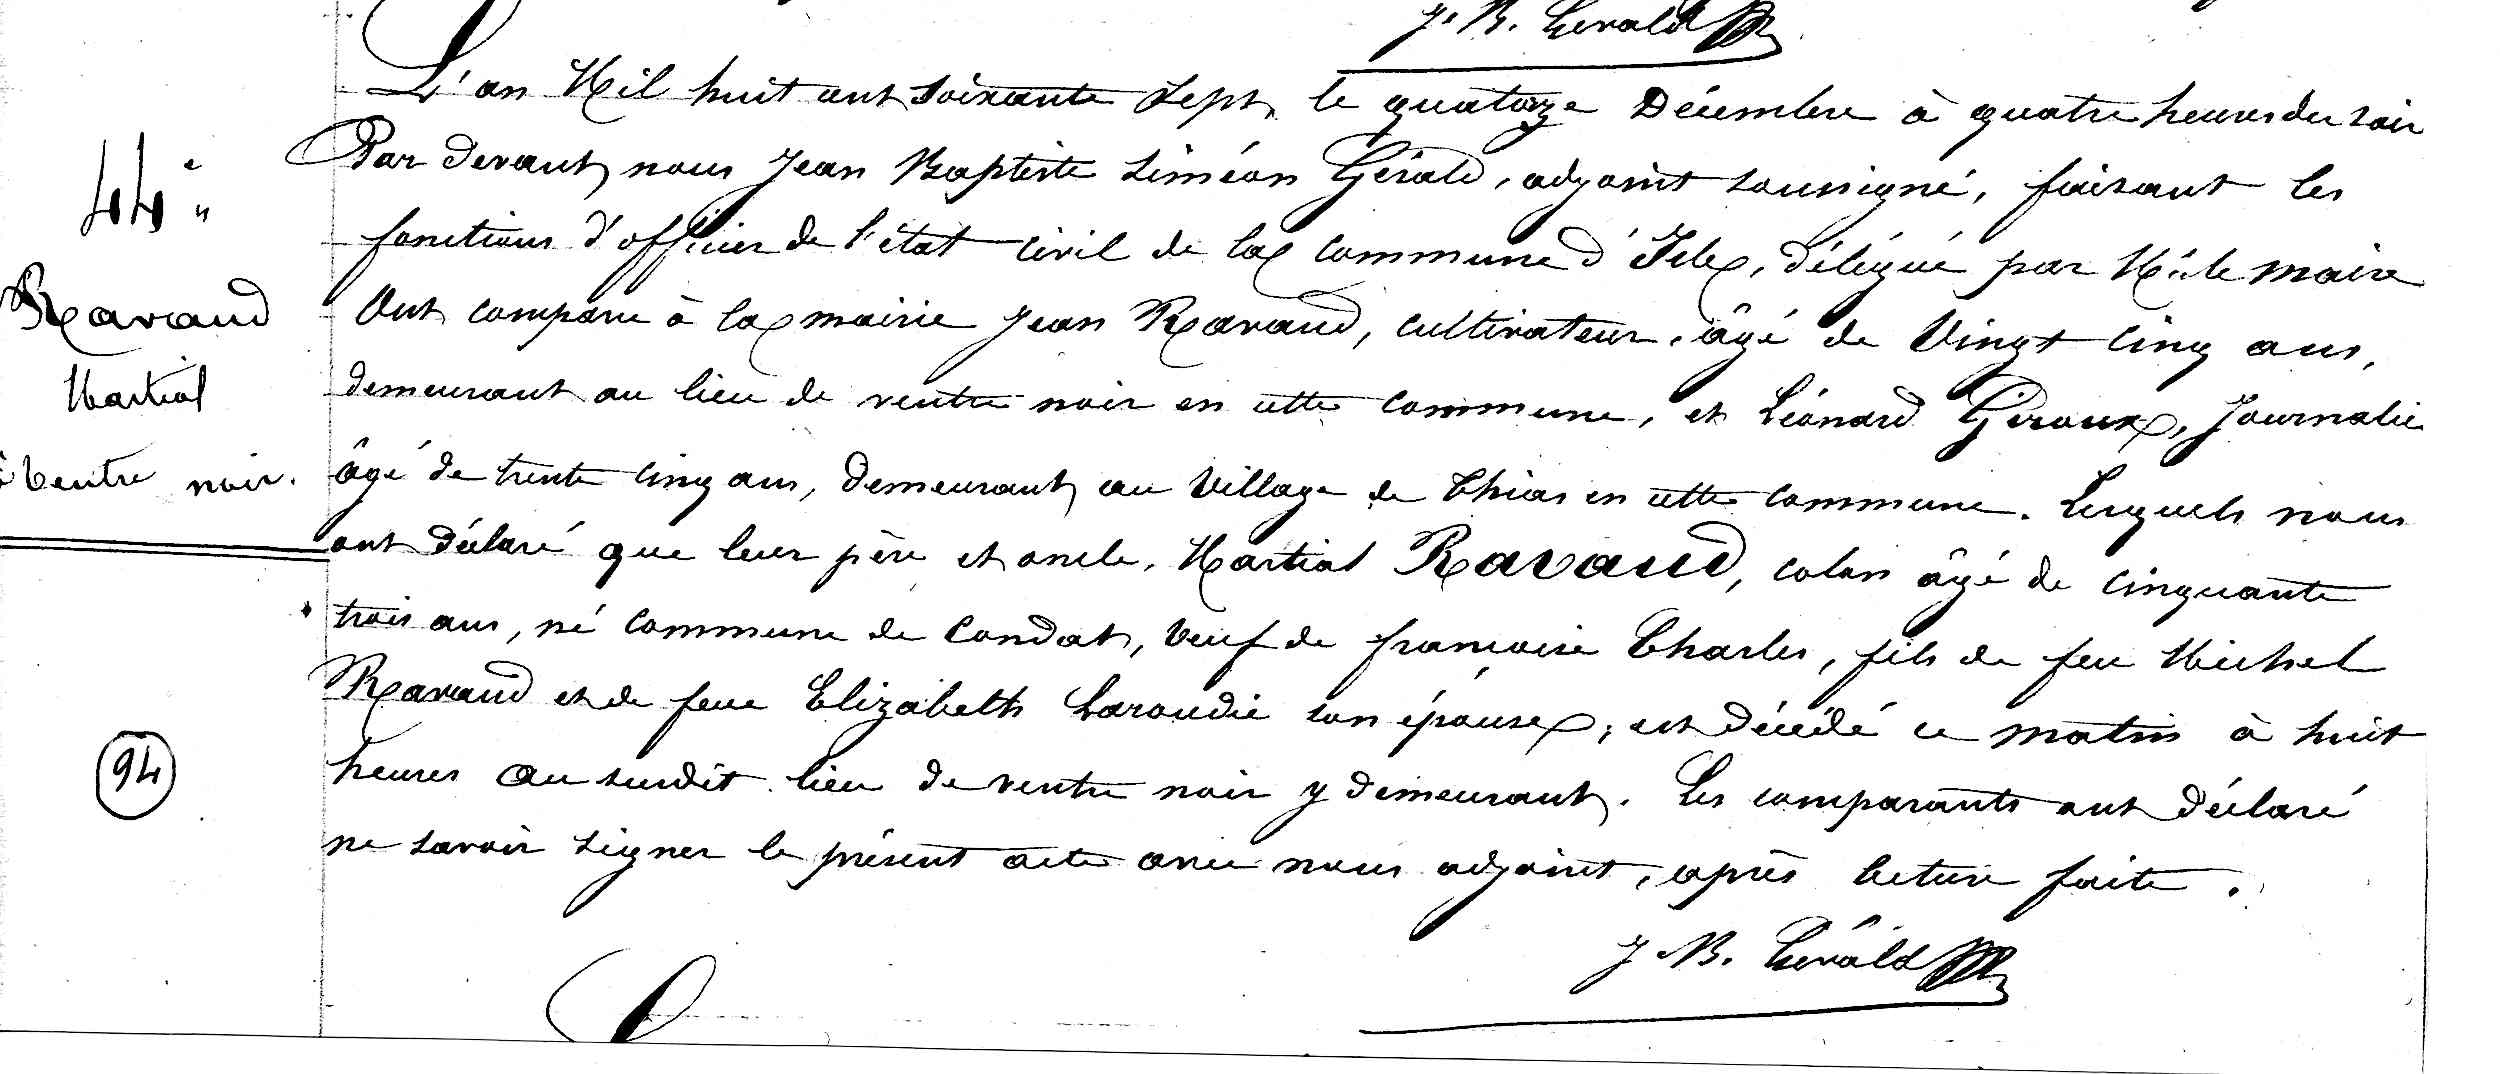 J. B. Gérald
44e
Ravaud
Martial
à Ventre noir.
94
L'an Mil huit cent soixante sept, le quatorze Décembre à quatre heures du soir
Par devant nous Jean Baptiste Siméon Gérald, adjoint soussigné, faisant les
fonctions d'officier de l'état civil de la commune d'Isle, délégué par M. le maire
Ont comparu à la mairie Jean Ravaud, cultivateur, âgé de Vingt cinq ans,
demeurant au lieu de ventre noir en cette commune, et Léonard Giroux, Journalier
âgé de trente cinq ans, demeurant au Village de Thias en cette commune. Lesquels nous
ont déclaré que leur père et oncle, Martial Ravaud, colon âgé de cinquante
trois ans, né commune de Condat, Veuf de françoise Charles, fils de feu Michel
Ravaud et de feue Elizabeth Laroudie son épouse, est décédé ce matin à huit
heures au susdit lieu de ventre noir y demeurant. Les comparants ont déclaré
ne savoir signer le présent acte avec nous adjoint, après lecture faite.
J. B. Gérald